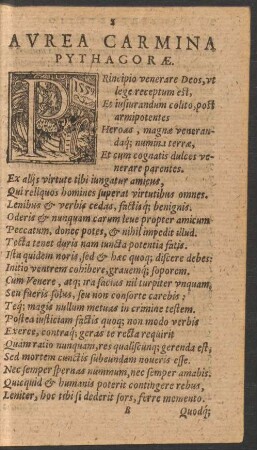 AVREA CARMINA
PYTHAGORÆ.
PRincipio venerare Deos, vt
lege receptum est,
Et iusiurandum colito, post
armipotentes
Heroas, magnæ veneran-
daq; numina terræ,
Et cum cognatis dulces ve-
nerare parentes.
Ex alijs virtute tibi iungatur amicus,
Qui reliquos homines superat virtutibus omnes.
Lenibus & verbis cedas, factisq; benignis.
Oderis & nunquam carum leue propter amicum
Peccatum, donec potes, & nihil impedit illud.
Tecta tenet duris nam iuncta potentia fatis.
Ista quidem noris, sed & hæc quoq; discere debes:
Initio ventrem cohibere, grauemq; soporem,
Cum Venere, atq; ira facias nil turpiter vnquam,
Seu fueris solus, seu non consorte carebis:
Teq; magis nullum metuas in crimine testem.
Postea iusticiam factis quoq; non modo verbis
Exerce, contraq; geras te recta requirit
Quàm ratio nunquam, res qualiscunq; gerenda est,
Sed mortem cunctis subeundam noueris esse.
Nec semper spernas nummum, nec semper amabis.
Quicquid & humanis poterit contingere rebus,
Leniter, hoc tibi si dederit sors, ferre memento.
Quodq;